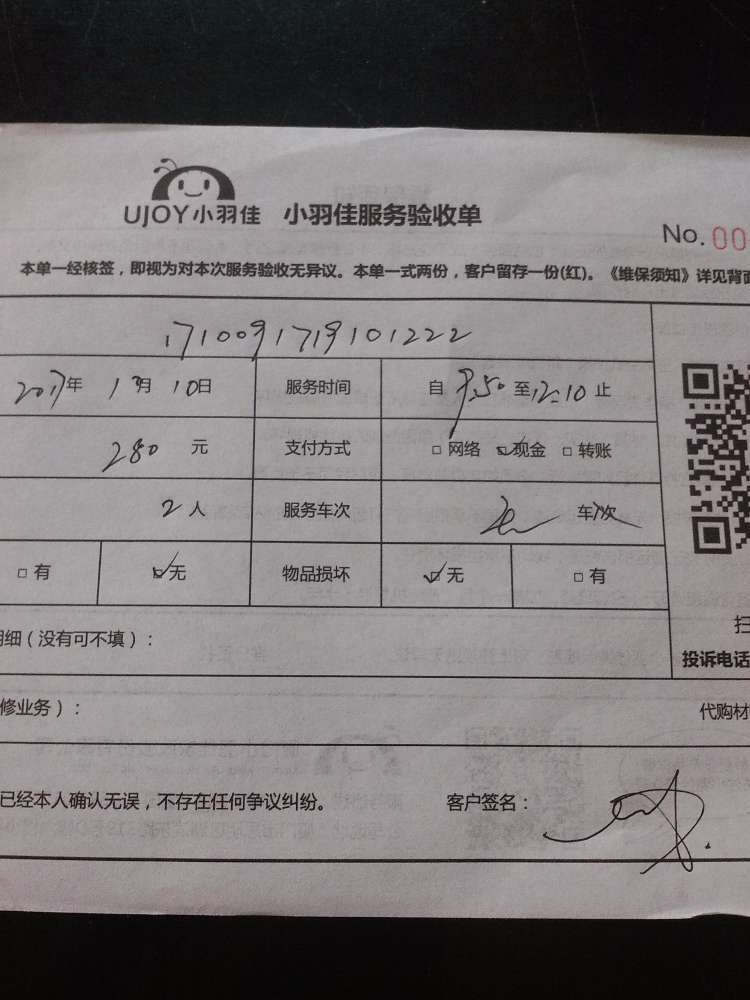 UJOY小羽佳 小羽佳服务验收单
No. 00
本单一经核签，即视为对本次服务验收无异议。本单一式两份，客户留存一份(红)。《维保须知》详见背面
1710091719101222
2017年 1月 10日 服务时间 自 9.50 至 12:10 止
280 元 支付方式 □ 网络 ☑ 现金 □ 转账
2 人 服务车次 车次
□ 有 ☑ 无 物品损坏 ☑ 无 □ 有
明细（没有可不填）：
扫
投诉电话
修业务）：
代购材
已经本人确认无误，不存在任何争议纠纷。 客户签名：